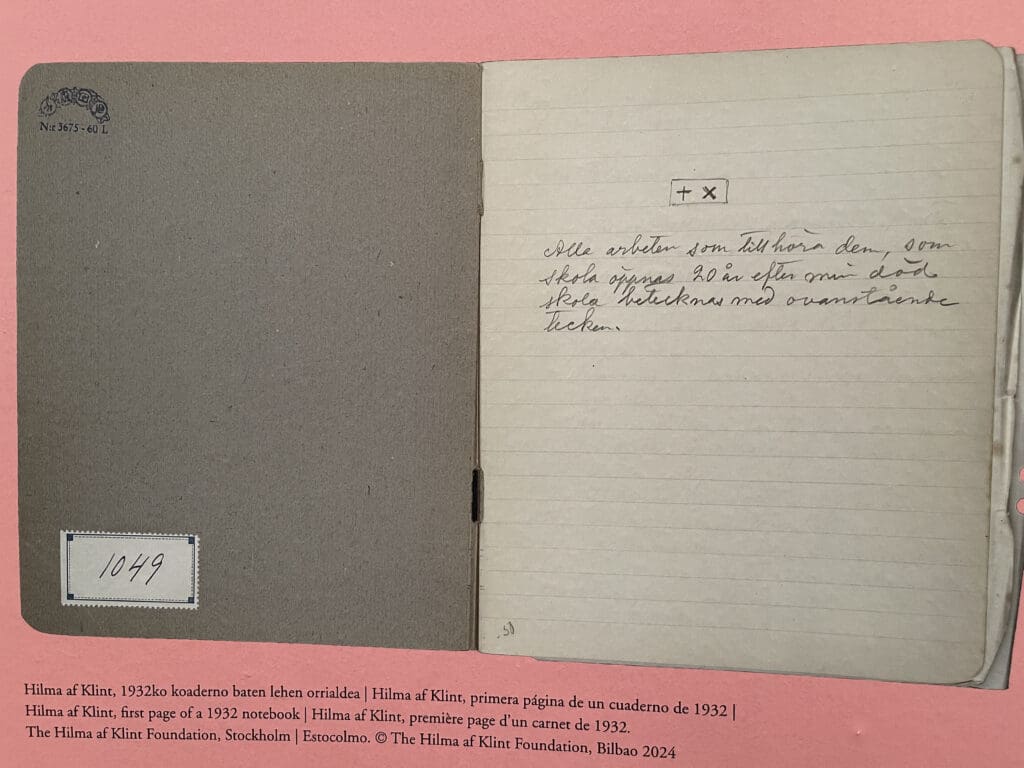 N:r 3675 - 60 L
+ x
Alla arbeten som tillhöra dem, som
skola öppnas 20 år efter min död
skola betecknas med ovanstående
tecken.
1049
Hilma af Klint, 1932ko koaderno baten lehen orrialdea | Hilma af Klint, primera página de un cuaderno de 1932 |
Hilma af Klint, first page of a 1932 notebook | Hilma af Klint, première page d'un carnet de 1932.
The Hilma af Klint Foundation, Stockholm | Estocolmo. © The Hilma af Klint Foundation, Bilbao 2024